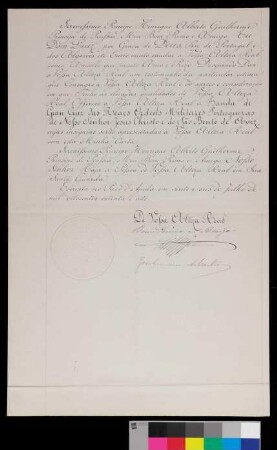 Serenissimo Principe Henrique Alberto Guilherme,
Principe da Prussia, Meu Bom Primo e Amigo. Eu
Dom Luiz por Graça de Deos, Rei de Portugal e
dos Algarves etc. Envio muito saudar a Vossa Alteza Real
como
Vossa Alteza Real um testemunho da particular estima
que Consagro a Vossa Alteza Real e do apreço e consideração
em que Tenho as elevadas qualidades de Vossa Alteza
Real, Offereço a Vossa Alteza Real a Banda da
Gran-Cruz das Ordens Militares Portuguezas
de Nosso Senhor Jesus Christo e de São Bento de Aviz,
cujas insignias serão apresentadas a Vossa Alteza Real
com esta Minha Carta.
Serenissimo Principe Henrique Alberto Guilherme,
Principe da Prussia, Meu Bom Primo e Amigo, Nosso
Senhor Haja a Pessoa de Vossa Alteza Real em Sua
Santa Guarda.
Escripta no Paço da Ajuda em vinte e seis de Julho de
mil oitocentos oitenta e oito.
De Vossa Alteza Real
Bom Primo e Amigo